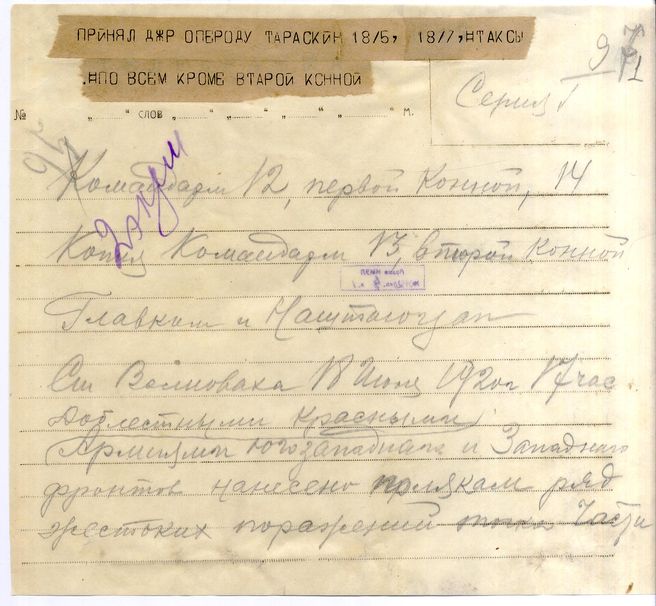 ПРИНЯЛ ДЖР ОПЕРОДУ ТАРАСКИН 18/5, 18/7,#ТАКСЫ
.#ПО ВСЕМ КРОМЕ ВТОРОЙ КСННОЙ
9
Серия I
№ „ “ СЛОВ „ “ „ “ „ “ м.
Командарм 12, первой Конной, 14
Копия Командарм 13, второй Конной
Главком и Наштаюгзап
Ст Волноваха 18 Июля 1920г 17 час
Доблестными красными
Армиями Югозападного и Западного
фронтов нанесено полякам ряд
жестоких поражений части